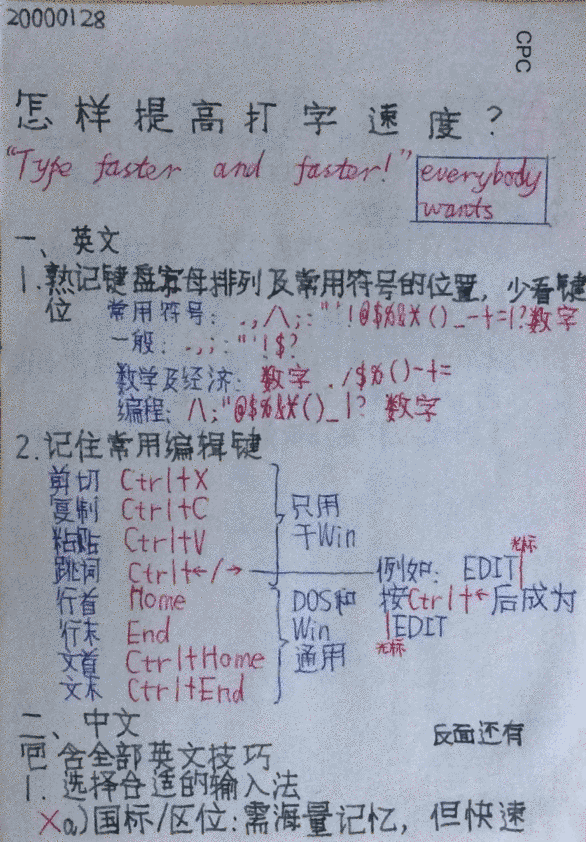 20000128
CPC
怎样提高打字速度?
"Type faster and faster!"
everybody
wants
一、英文
1.熟记键盘字母排列及常用符号的位置,少看键
位
常用符号: .,/\;:"'!@$%&*()_-+=|?数字
一般: .,;:"'!$?
数学及经济: 数字 ./$%()-+=
编程: /\;"@$%&*()_|? 数字
2.记住常用编辑键
剪切 Ctrl+X
复制 Ctrl+C
粘贴 Ctrl+V
跳词 Ctrl+←/→
只用
于Win
行首 Home
行末 End
文首 Ctrl+Home
文末 Ctrl+End
DOS和
Win
通用
例如: EDIT|
光标
按Ctrl+←后成为
|EDIT
光标
二、中文
包含全部英文技巧
1.选择合适的输入法
×a)国标/区位:需海量记忆,但快速
反面还有